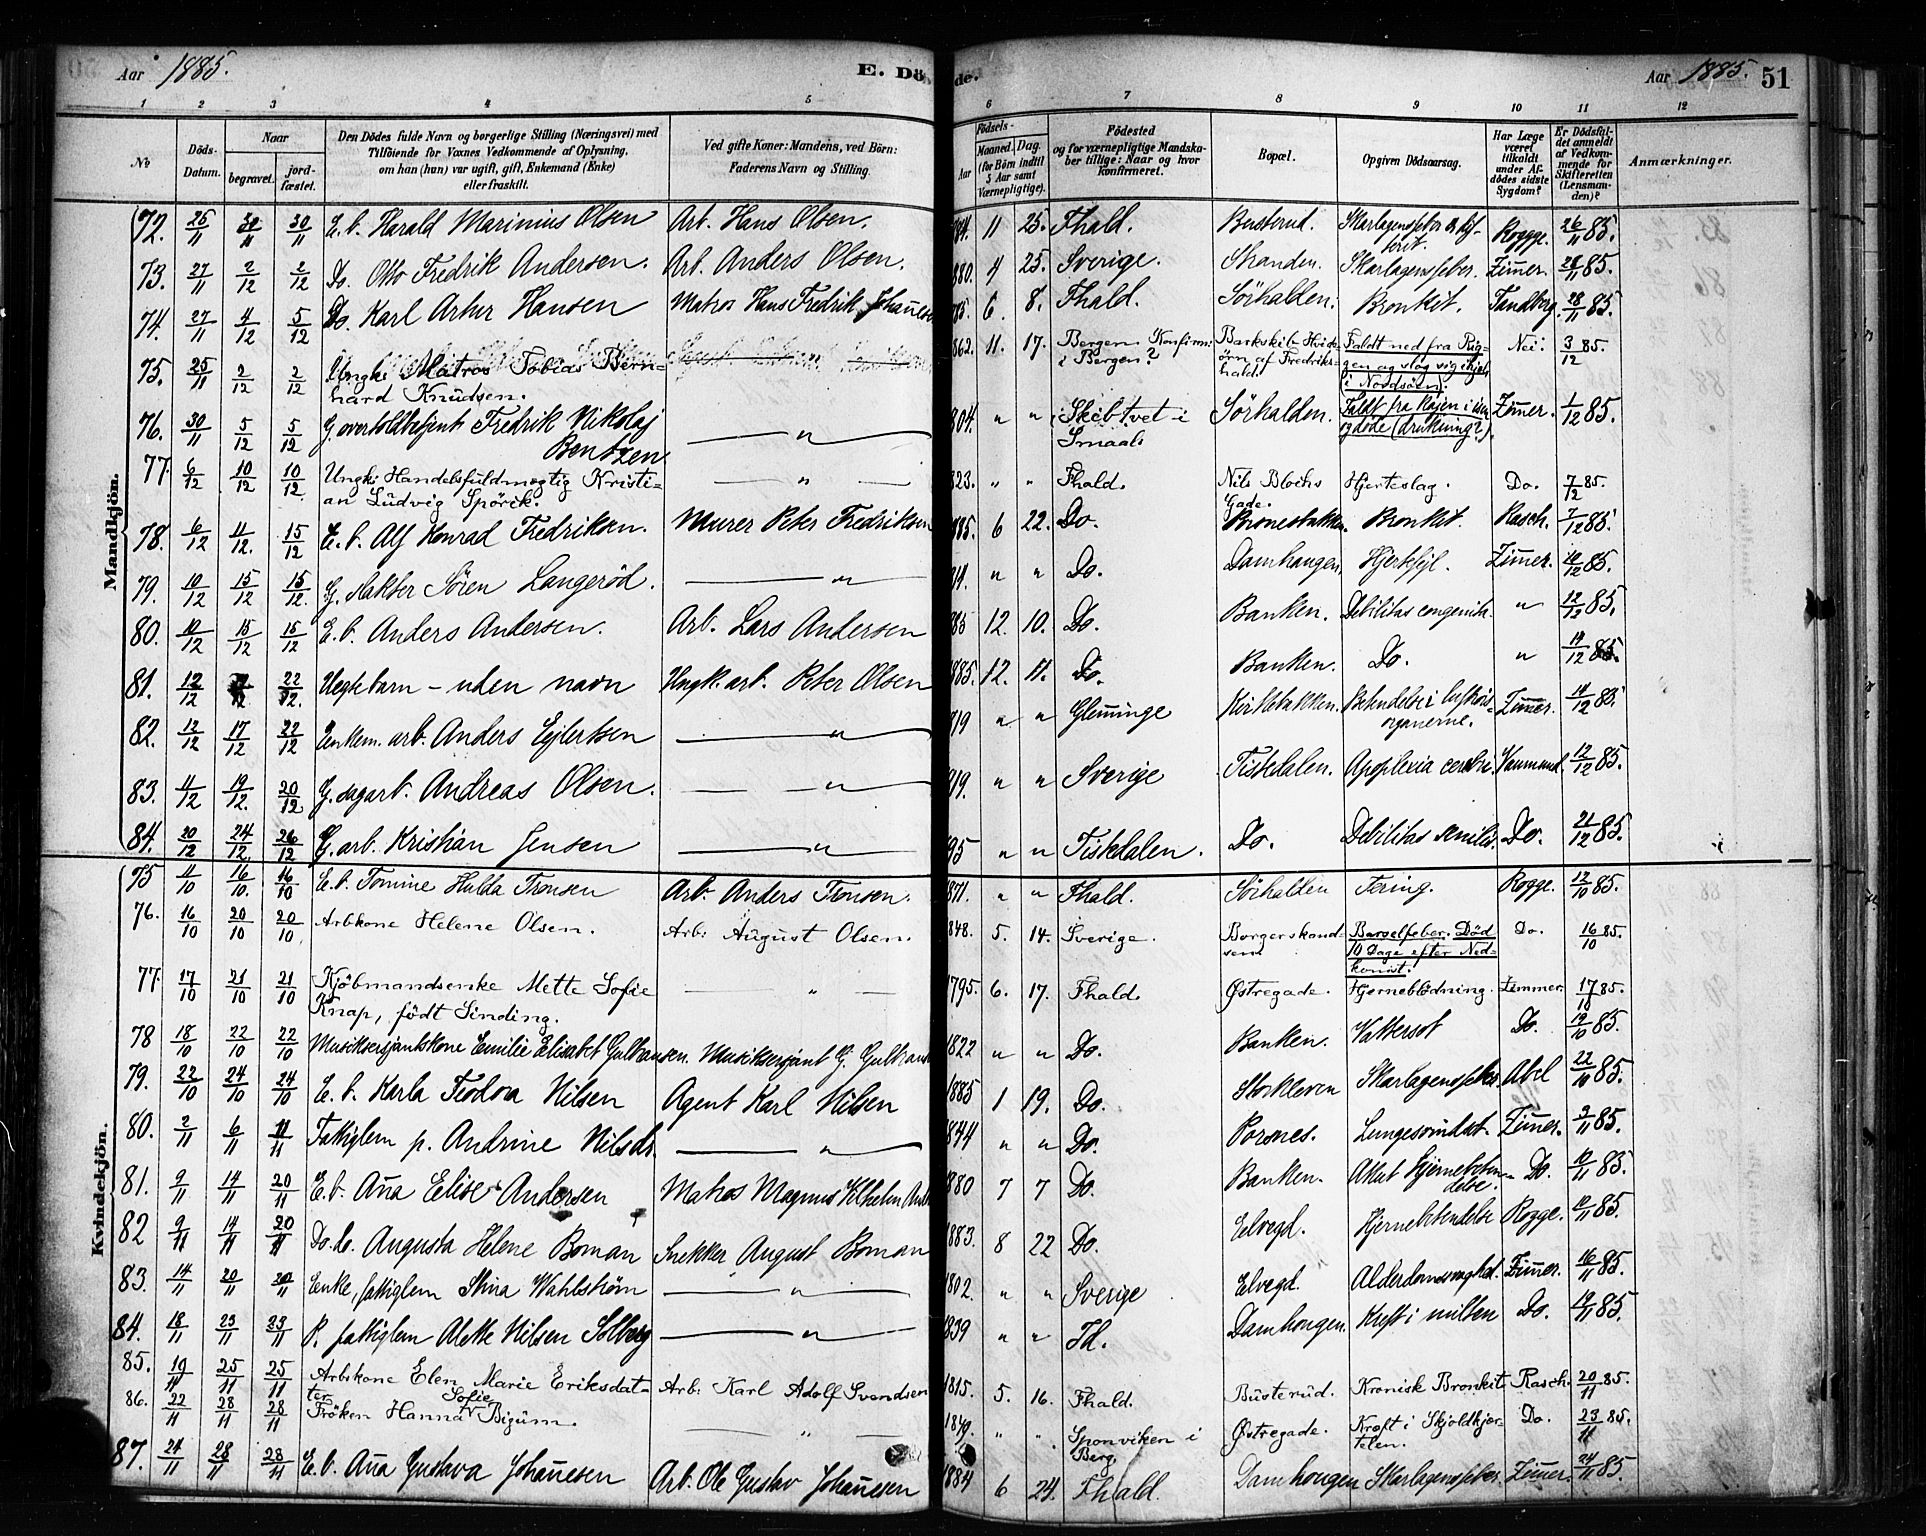 Aar 1885. E. Dö de. Aar 1885. 51
1 2 3 4 5 6 7 8 9 10 11 12
No
Döds-Datum.
Naar
begravet.
jord-fæstet.
Den Dödes fulde Navn og borgerlige Stilling (Næringsvei) med
Tilföiende for Voxnes Vedkommende af Oplysning,
om han (hun) var ugift, gift, Enkemand (Enke)
eller fraskilt.
Ved gifte Koner: Mandens, ved Börn:
Faderens Navn og Stilling.
Födsels-
Aar
Maaned. Dag.
(for Börn indtil
5 Aar samt
Værnepligtige).
Födested
og for værnepligtige Mandska-
ber tillige: Naar og hvor
konfirmeret.
Bopæl.
Opgiven Dödsaarsag.
Har Læge
været
tilkaldt
under Af-
dödes sidste
Sygdom?
Er Dödsfal-
det anmeldt
af Vedkom-
mende for
Skifteretten
(Lensman-
den)?
Anmærkninger.
Mandkjön.
72. 25/11 30/11 30/11 E. b. Harald Marinius Olsen Arb. Hans Olsen. 884. 11 25. Fhald. Busterud. Skarlagensfeber & dif-
terit. Rogge. 26/11 85.
73. 27/11 2/12 2/12 Do. Otto Fredrik Andersen. Arb. Anders Olsen. 880. 4 25. Sverige. Stranden. Skarlagensfeber. Zimer. 28/11 85.
74. 27/11 4/12 5/12 Do. Karl Artur Hansen Matros Hans Fredrik Johannesen 885. 6. 8. Fhald. Sörhalden. Bronkit. Tandberg. 28/11 85.
75. 25/11 2/12 2/12 Ungk: Matros Tobias Bern-
hard Knudsen. 862. 11. 17. Bergen Konfirm:
i Bergen? Barkskib Hvid-
örn af Fredriks-
hald. Faldt ned fra Rig-
gen og slog sig ihjel
i Nordsöen. Nei. 3/12 85.
76. 30/11 5/12 5/12 G. overtoldbetjent Fredrik Nikolaj
Bentzen — " — 804. " " Skibtvet i
Smaal: Sörhalden. Faldt fra Kajen i sjöen
og döde (drukning?). Zimer. 1/12 85.
77. 6/12 10/12 10/12 Ungk: Handelsfuldmægtig Kristi-
an Ludvig Spörik. — " — 823. " " Fhald. Nils Blochs
Gade. Hjerteslag. Do. 7/12 85.
78. 6/12 11/12. 15/12 E. b. Alf Konrad Fredriksen. Murer Peter Fredriksen 885. 6 22. Do. Bronesbakken. Bronkit. Rasch. 7/12 85.
79. 10/12 15/12 15/12. G. slakter Sören Langeröd. — " " " Do. Damhaugen. Hjertfejl. Zimer. 10/12 85.
80. 10/12 15/12 15/12 E. b. Anders Andersen. Arb. Lars Andersen 885 12. 10. Do. Banken. Debilitas congenita. " 12/12 85.
81. 12/12 22/12. Uegtebarn – uden navn Ungk. arb. Peter Olsen 885. 12. 11. Do. Banken. Do. " 14/12 85.
82. 12/12 17/12 22/12 Enkem. arb. Anders Ejlertsen — " 719 " " Glemminge Kirkebakken. Betendelse i luftveis-
organerne. Zimer. 14/12 85.
83. 11/12 19/12. 20/12 G. sagarb. Andreas Olsen. — " — 819. " " Sverige Tistedalen. Apoplexia cerebri Vaumund. 12/12 85.
84. 20/12 24/12. 26/12 G. arb. Kristian Jensen — " — 95 " " Tistedalen. Do. Debilitas senilis. Do. 21/12 85.
Kvindekjön.
75 11/10 16/10. 16/10 E. b. Tomine Hulda Tronsen Arb. Anders Tronsen. 1871. " " Fhald. Sörhalden Tæring. Rogge. 12/10 85.
76. 16/10 20/10 20/10. Arbkone Helene Olsen. Arb: August Olsen. 1848. 5. 14. Sverige. Borgerskand-
sen Barselfeber. Död
10 Dage efter Ned-
komst. Do. 16/10 85.
77. 17/10 21/10 21/10 Kjöbmandsenke Mette Sofie
Knap, födt Sinding. — " — 1795. 6. 17. Fhald. Østregade. Hjerneblödning. Zimmer. 17/10 85.
78 18/10 22/10 22/10 Musiksersjantskone Emilie Elisabet Gulbransen. Musiksersjant G. Gulbransen 1822 " " Do. Banken. Vattersot Do. 19/10 85.
79. 22/10 24/10 24/10 E. b. Karla Teodora Nilsen Agent Karl Nilsen 1885 1 19. Do. Storkleven Skarlagensfeber Abel 22/10 85.
80. 2/11 6/11 11/11 Fattiglem p. Andrine Nilsdr. — " — 1844 " " Do. Porsnes. Lungesvindsot. Zimer. 2/11 85.
81. 9/11 14/11 20/11 E. b. Ana Elise Andersen Matros Magnus Vilhelm Ander 1880 7 7 Do. Banken. Akut Hjernebeten-
delse. Do. 10/11 85.
82 9/11 14/11 20/11 Do. do. Augusta Helene Boman Snekker August Boman 1883. 8 22 Do. Elvegd. Hjernebetendelse Rogge. 10/11 85.
83. 14/11 20/11 20/11 Enke, fattiglem Stina Wahlström — " — 1802. " " Sverige Elvegd. Alderdomssvaghed. Zimer. 16/11 85.
84. 18/11 23/11 23/11 P. fattiglem Alette Nilsen Solberg — " — 1839 " " Fd. Damhougen. Kræft i milten Do. 19/11 85.
85. 19/11 25/11 25/11 Arbskone Elen Marie Eriksdat-
ter Arb: Karl Adolf Svendsen 1815. 5. 16. Fhald. Busterud. Kronisk Bronkit Rasch. 20/11 85.
86. 22/11 28/11 28/11 Fröken Hanna Sofie Bigum. — " — 1849. " " Sponviken i
Berg Østregade. Kræft i Skjoldkjer-
telen. Do. 23/11 85.
87. 24/11 28/11 28/11 E. b. Ana Gustava Johannesen Arb. Ole Gustav Johannesen 1884 6 24. Fhald. Damhougen Skarlagensfeber. Zimer. 24/11 85.